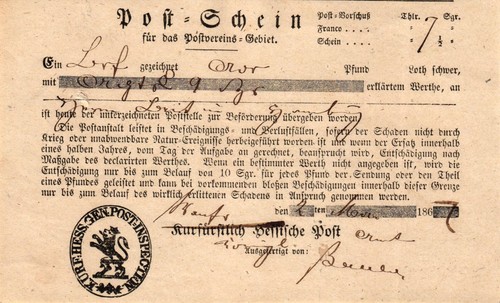 Post-Schein
für das Postvereins-Gebiet.
Post-Vorschuß Thlr. Sgr.
Franco . . . . 7
Schein . . . . ½
Ein gezeichnet Pfund Loth schwer,
mit erklärtem Werthe, an
ist heute der unterzeichneten Poststelle zur Beförderung übergeben worden.
Die Postanstalt leistet in Beschädigungs- und Verlustfällen, sofern der Schaden nicht durch
Krieg der unabwendbare Natur-Ereignisse herbeigeführt worden ist und wenn der Ersatz innerhalb
eines halben Jahres, vom Tag der Aufgabe an gerechnet, beansprucht wird, Entschädigung nach
Maßgabe des declarirten Werthes. Wenn ein bestimmter Werth nicht angegeben ist, wird die
Entschädigung nur bis zum Belauf von 10 Sgr. für jedes Pfund der Sendung oder den Theil
eines Pfundes geleistet und kann bei vorkommenden bloßen Beschädigungen innerhalb dieser Grenze
nur bis zum Belauf des wirklich erlittenen Schadens in Anspruch genommen werden.
den 2ten 1867
Kurfürstlich Hessische Post
Ausgefertigt von:
KURF. HESS. GEN. POST-INSPECTION